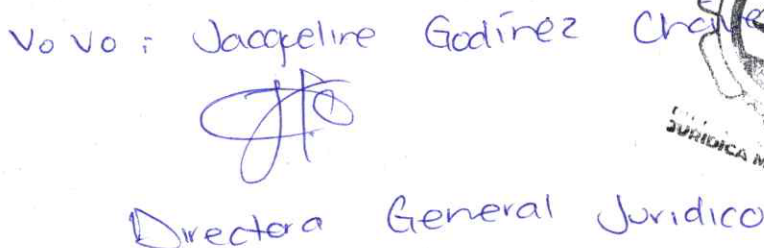 Vo Vo : Jacqueline Godínez
JURIDICA M
Directora General Jurídico